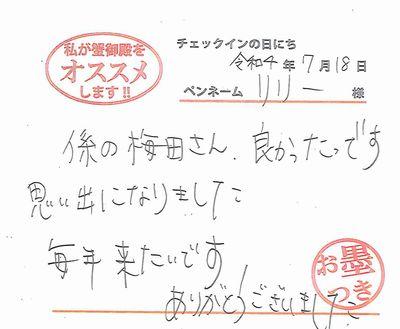 私が蟹御殿を
オススメ
します!!
チェックインの日にち
令和4年7月18日
ペンネーム リリー 様
係の梅田さん、良かったです
思い出になりました
毎年来たいです
ありがとうございました
お墨
つき